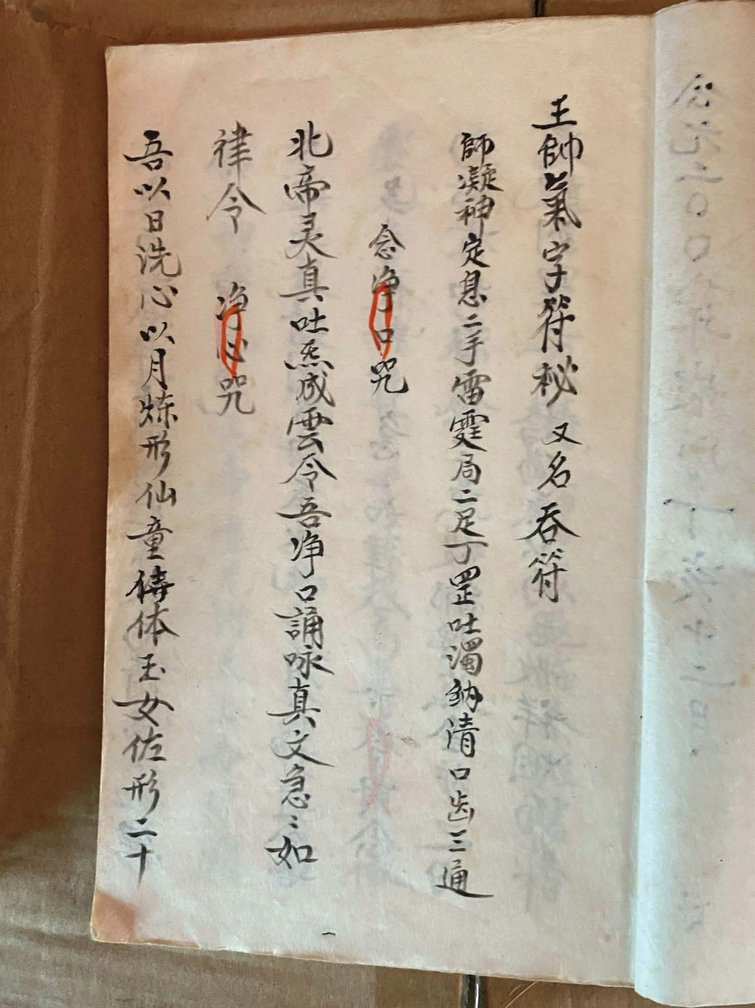 王帥氣字符秘 又名吞符
師凝神定息二手雷霆局二足丁罡吐濁納清口齿三通
念净口咒
北帝灵真吐炁成雲令吾净口誦咏真文急〻如
律令 净心咒
吾以日洗心以月炼形仙童侍体玉女佐形二十